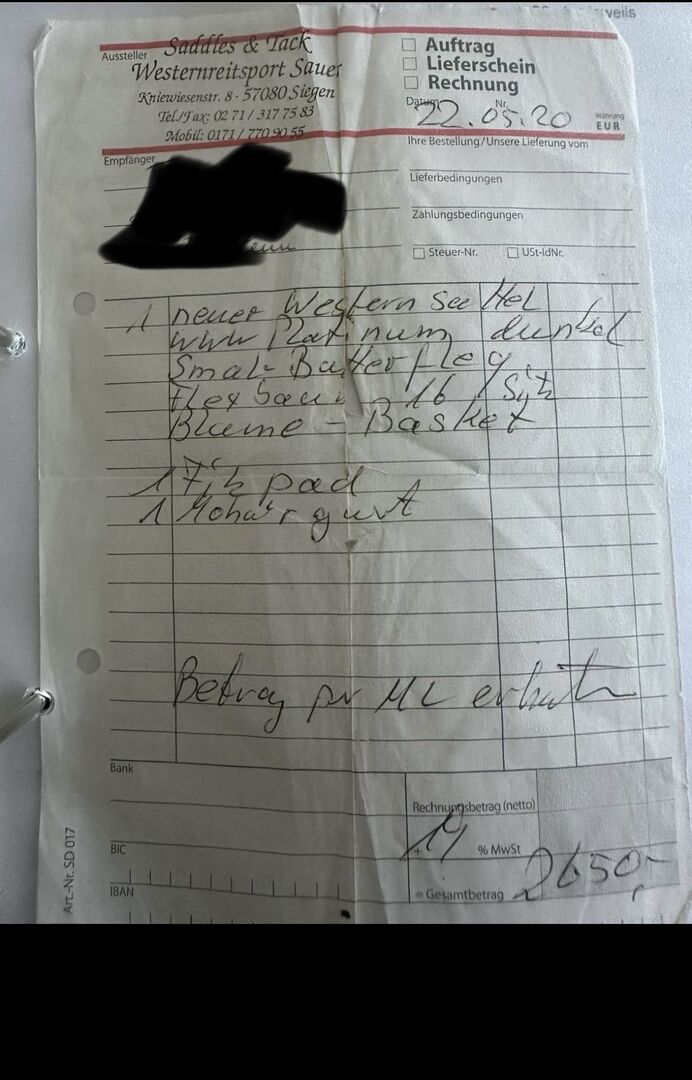 weils
Aussteller
Saddles & Tack
Westernreitsport Sauer
Kniewiesenstr. 8 · 57080 Siegen
Tel./Fax: 02 71 / 317 75 83
Mobil: 0171 / 770 90 55
Auftrag
Lieferschein
Rechnung
Datum Nr.
22.05.20
Währung
EUR
Empfänger
Ihre Bestellung/Unsere Lieferung vom
Lieferbedingungen
Zahlungsbedingungen
Steuer-Nr. USt-IdNr.
1 neuer Western Sattel
www Platinum dunkel
Smal-
Flex 16 Sitz
Blume - Basket
1 Filz pad
1 Mohair gurt
Betrag erhalten
Bank
Rechnungsbetrag (netto)
BIC
+ 19 % MwSt
IBAN
= Gesamtbetrag 2650,-
Art.-Nr. SD 017